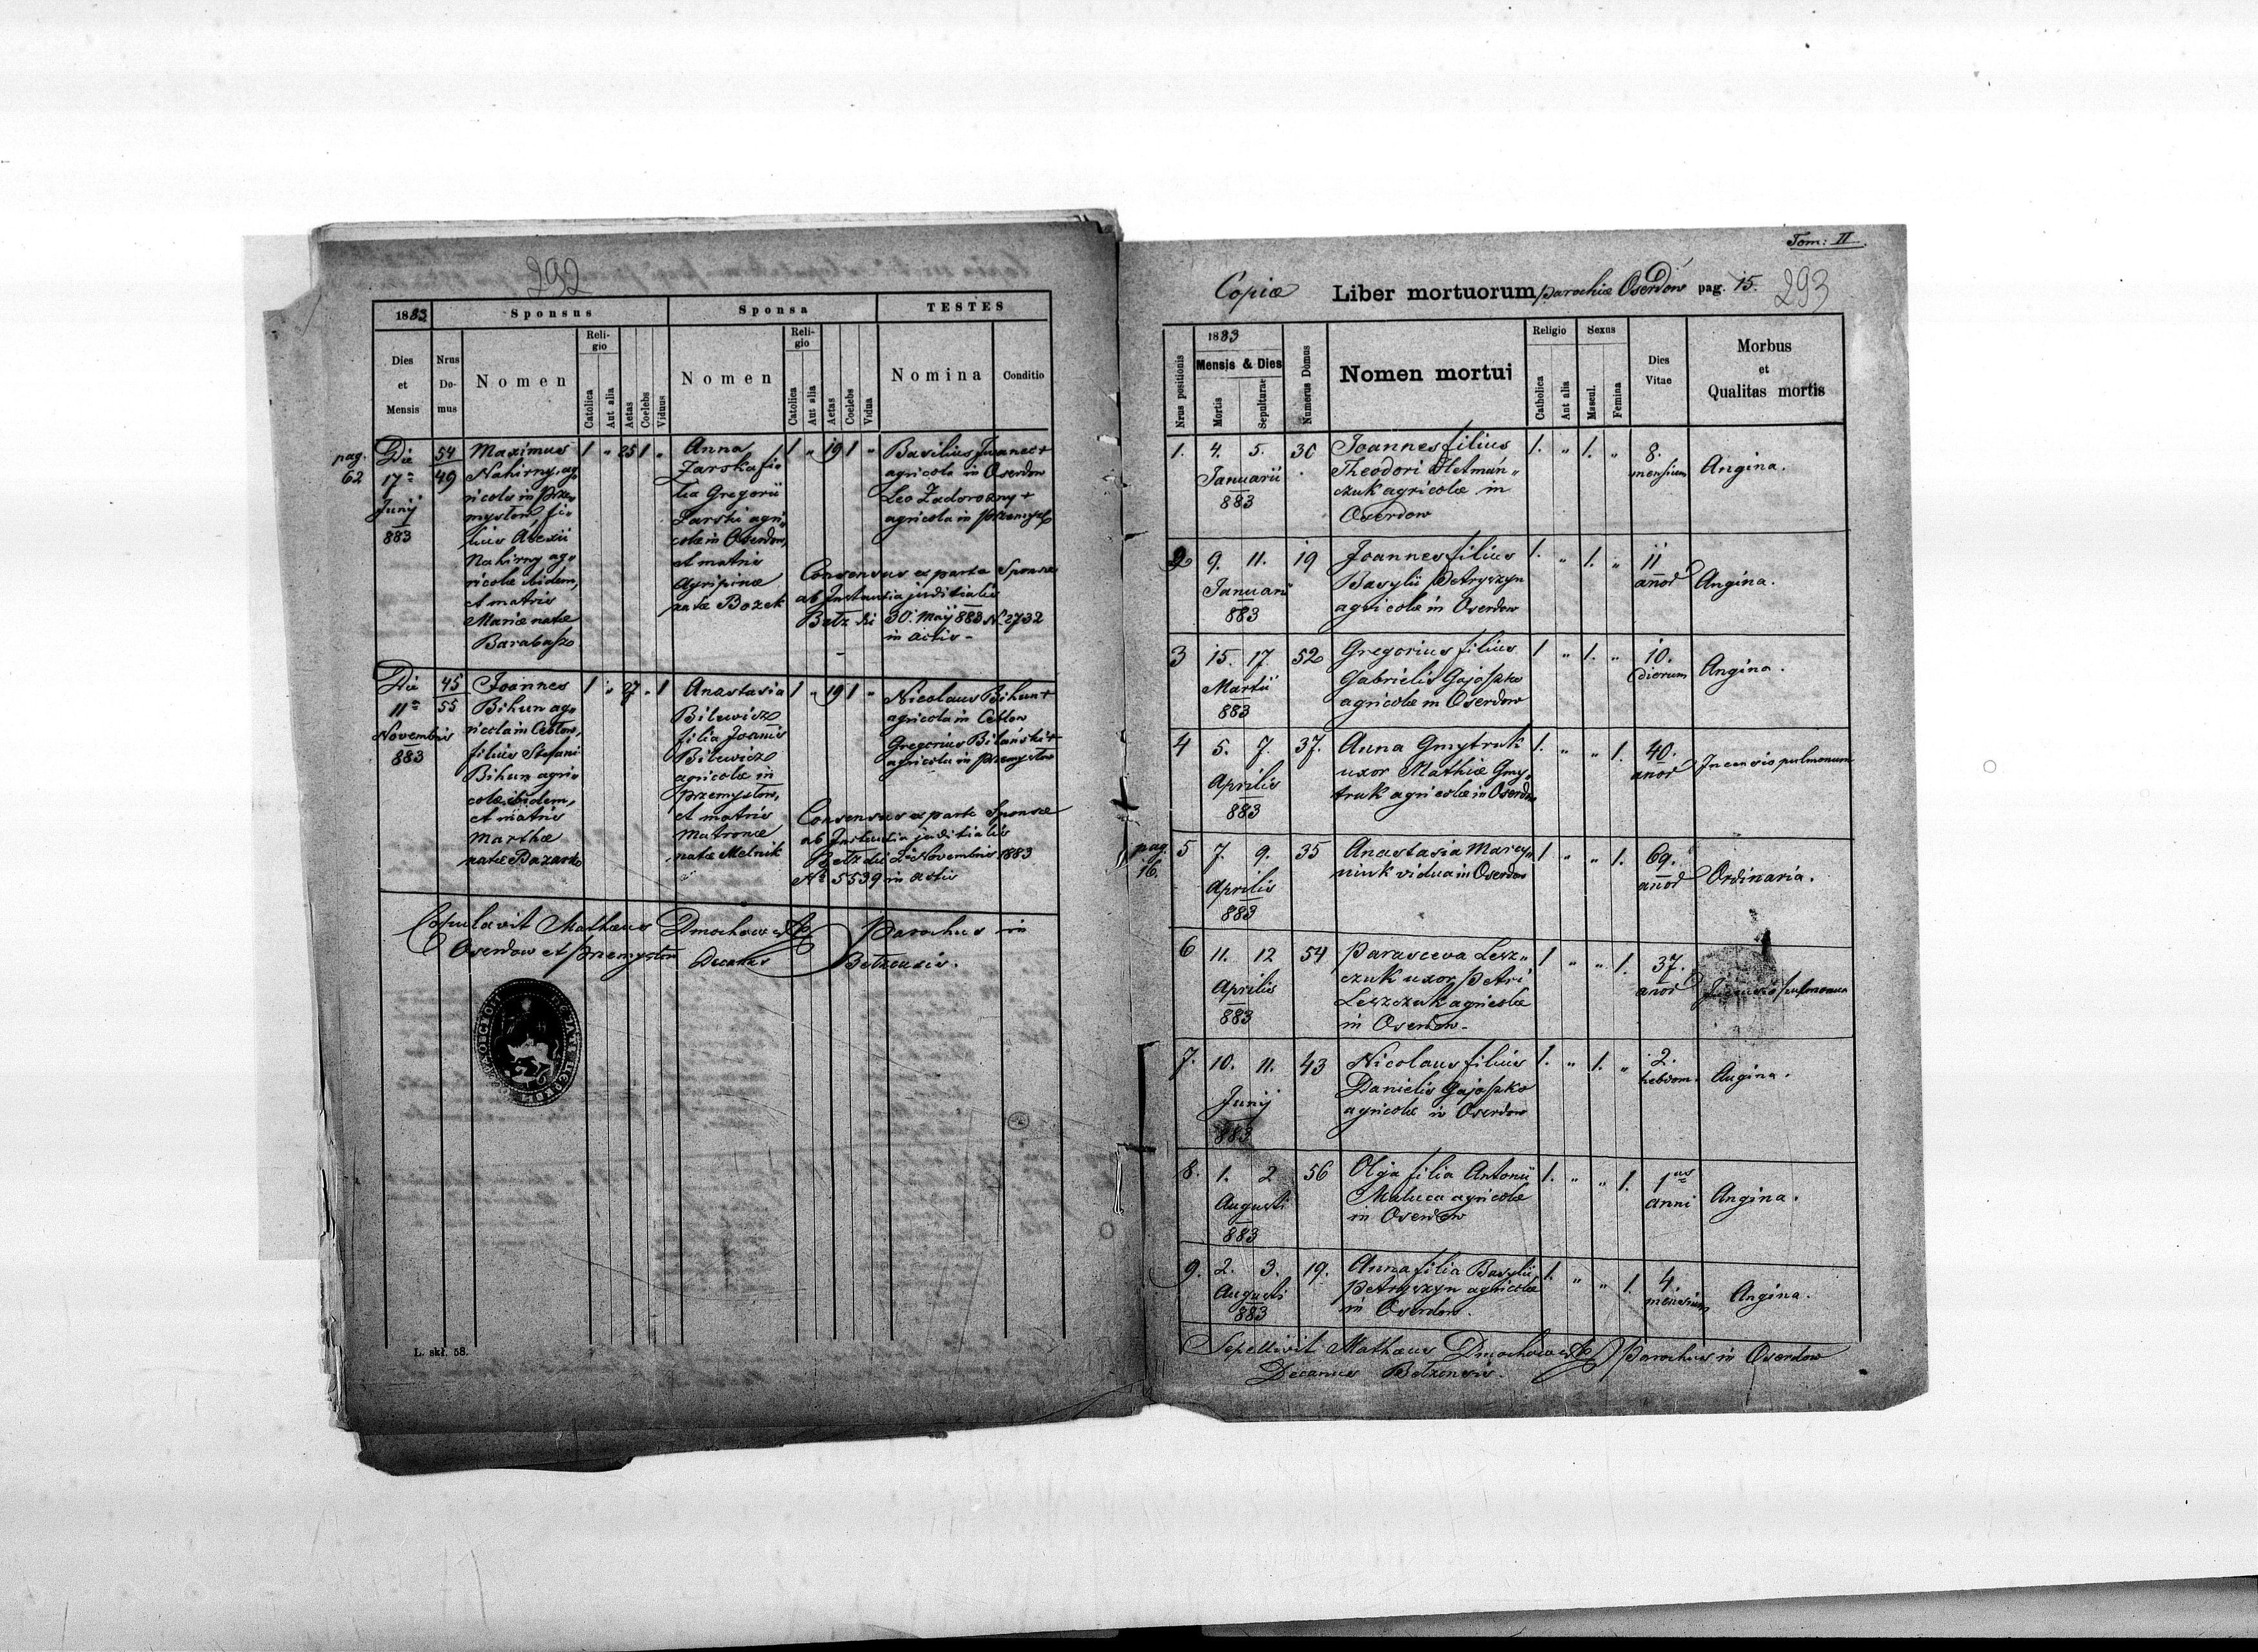 292
1883
Sponsus
Sponsa
TESTES
Dies
et
Mensis
Nrus
Do-
mus
Nomen
Reli-
gio
Catolica
Aut alia
Aetas
Coelebs
Viduus
Nomen
Reli-
gio
Catolica
Aut alia
Aetas
Coelebs
Vidua
Nomina
Conditio
pag.
62
Die
17a
Junij
883
54
49
Maximus
Nahirny, ag„
ricola in Prze„
mysłow, fi„
lius Alexii
Nahirny, ag„
ricolæ ibidem,
et matris
Mariæ natæ
Barabasz
1 „ 25 1 „
Anna
Zarska fi„
lia Gregorii
Zarski agri„
colæ in Oserdow,
et matris
Agripinæ
natæ Bozek
1 „ 19 1 „
Basilius Iwanec +
agricola in Oserdow
Leo Zadorozny +
agricola in Przemysł
Consensus ex parte Sponsæ
ab Instantia juditialis
Bełz dei 30. Maij 883 N. 2732
in actis -
Die
11a
Novembris
883
45
55
Joannes
Bihun ag„
ricola in Cebłow,
filius Stefani
Bihun agri„
colæ ibidem,
et matris
Marthæ
natæ Bazarko
1 „ 27 „ 1
Anastasia
Bilewicz
filia Joanis
Bilewicz
agricolæ in
Przemysłow,
et matris
Matronæ
natæ Melnik
1 „ 19 1 „
Nicolaus Bihun +
agricola in Cebłow
Gregorius Bilański +
agricola in Przemysłow
Consensus ex parte Sponsæ
ab Instantia juditialis
Bełz dei 2 Novembris 1883
No 5539 in actis
Copulavit Mathæus Dmochowski Parochus in
Oserdow et Przemysłow Decanus Bełzensis.
L. skł. 58.
Tom: II.
Copiæ Liber mortuorum parochiæ Oserdow pag. 15.
293
Nrus positionis
1883
Mensis & Dies
Mortis
Sepulturae
Numerus Domus
Nomen mortui
Religio
Catholica
Ant alia
Sexus
Mascul.
Femina
Dies
Vitae
Morbus
et
Qualitas mortis
1. 4. 5.
Januarii
883
30
Joannes filius
Theodori Hetmań„
czuk agricolæ in
Oserdow
1. „ 1. „
8.
mensium
Angina.
2 9. 11.
Januarii
883
19
Joannes filius
Basylii Petryszyn
agricolæ in Oserdow
1. „ 1. „
11
anor
Angina.
3 15. 17.
Martii
883
52
Gregorius filius
Gabrielis Gajoszko
agricolæ in Oserdow
1 „ 1. „
10.
dierum
Angina.
4 5. 7.
Aprilis
883
37.
Anna Gmytruk
uxor Mathiæ Gmy„
truk agricolæ in Oserdow
1. „ „ 1.
40.
anor
Incensio pulmonum
pag.
16.
5 7. 9.
Aprilis
883
35
Anastasia Marcy„
niuk vidua in Oserdow
1 „ „ 1.
69.
anor
Ordinaria.
6 11. 12
Aprilis
883
54
Parasceva Lesz„
czuk uxor Petri
Leszczuk agricolæ
in Oserdow -
1 „ „ 1.
37.
anor
Incensio pulmonum
7. 10. 11.
Junij
883
43
Nicolaus filius
Danielis Gajoszko
agricolæ in Oserdow
1. „ 1. „
2.
hebdom.
Angina.
8. 1. 2
Augusti
883
56
Olga filia Antonii
Maluca agricolæ
in Oserdow
1. „ „ 1.
1us
anni
Angina.
9. 2. 3.
Augusti
883
19.
Anna filia Basylii
Petryszyn agricolæ
in Oserdow.
1. „ „ 1.
4.
mensium
Angina.
Sepelivit Mathæus Dmochowski Parochus in Oserdow
Decanus Bełzensis.